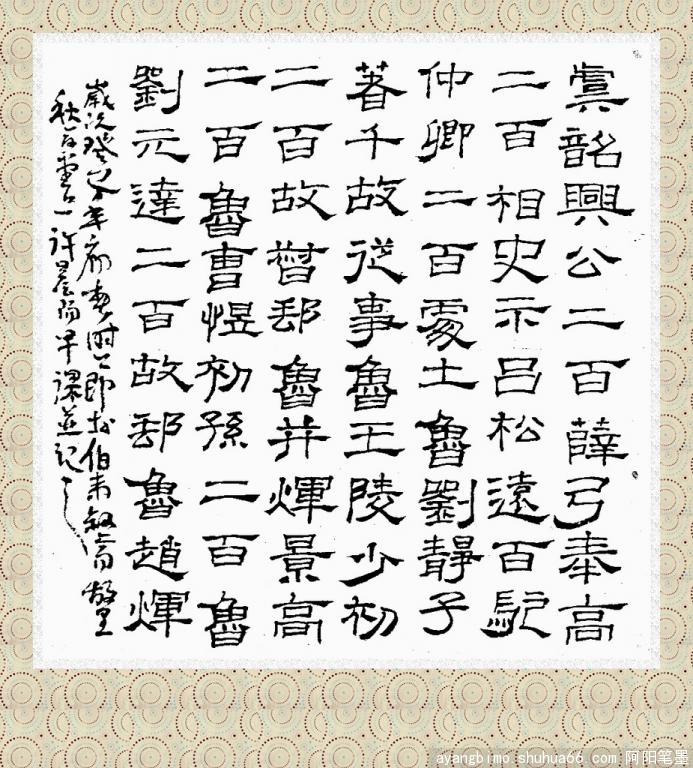 虞韶興公二百薛弓奉高
二百相史卞吕松遠百
仲卿二百處土魯劉靜子
著千故從事魯王陵少初
二百故督郵魯幵煇景高
二百魯曹悝初孫二百魯
劉元達二百故郵魯趙煇
歲次癸巳年初春時即於伯未敘齋
許晨陽早課並記之
ayangbimo.shuhua66.com 阿阳笔墨